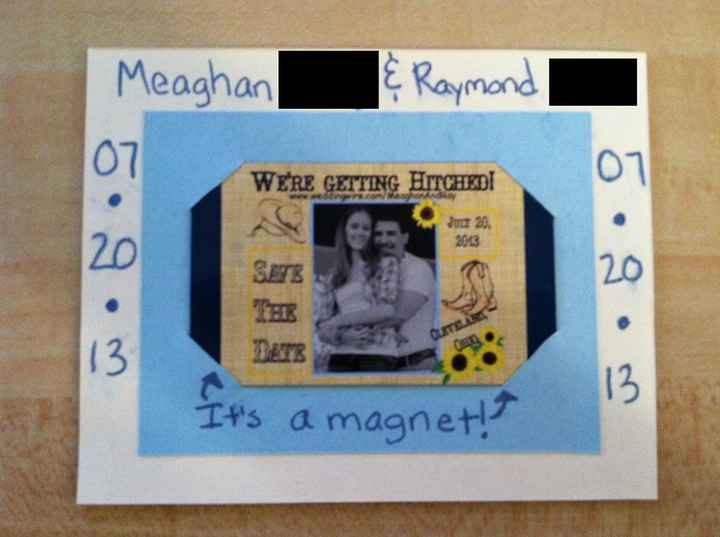 Meaghan & Raymond
07 • 20 • 13
WE'RE GETTING HITCHED!
www.weddingwire.com/MeaghanAndRay
SAVE
THE
DATE
JULY 20,
2013
CLEVELAND,
OHIO
07 • 20 • 13
It's a magnet!